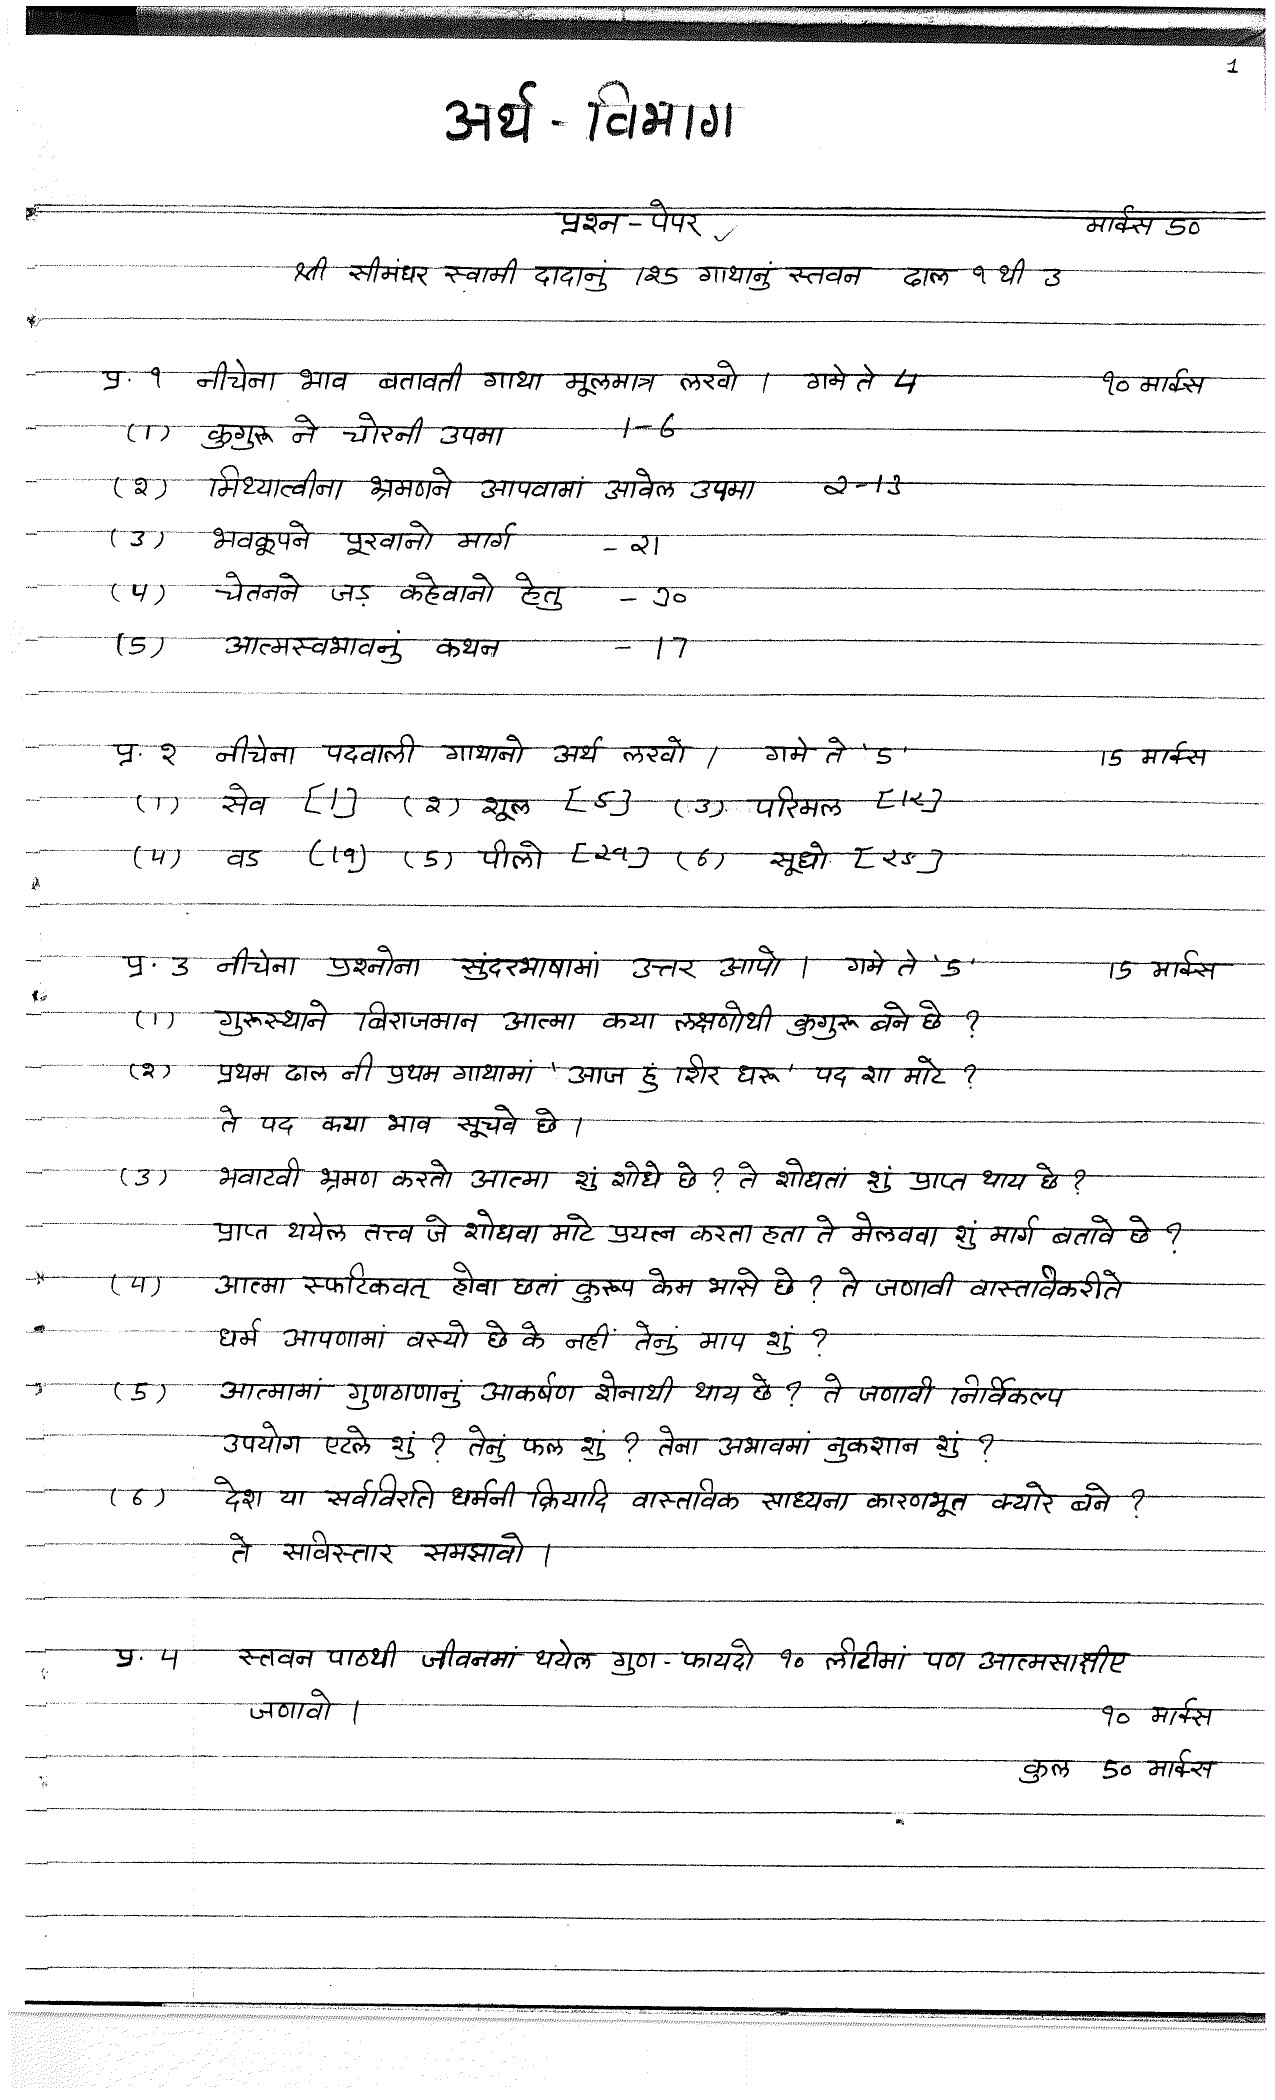 1
अर्थ - विभाग
प्रश्न - पेपर मार्क्स 50
श्री सीमंधर स्वामी दादानुं 125 गाथानुं स्तवन ढाल १ थी ३
प्र. १ नीचेना भाव बतावती गाथा मूलमात्र लखो । गमे ते 4 १० मार्क्स
(1) कुगुरू ने चोरनी उपमा 1-6
(२) मिथ्यात्वीना भ्रमणने आपवामां आवेल उपमा २-13
(3) भवकूपने पूरवानो मार्ग - २1
(4) चेतनने जड़ कहेवानो हेतु - ३०
(5) आत्मस्वभावनुं कथन - 17
प्र. २ नीचेना पदवाली गाथानो अर्थ लखो । गमे ते '5' 15 मार्क्स
(1) सेव [1] (२) शूल [5] (3) परिमल [1२]
(4) वड (1१) (5) पीलो [२१] (6) सूधो [२5]
प्र. 3 नीचेना प्रश्नोना सुंदरभाषामां उत्तर आपो । गमे ते '5' 15 मार्क्स
(1) गुरूस्थाने बिराजमान आत्मा कया लक्षणोथी कुगुरू बने छे ?
(२) प्रथम ढाल नी प्रथम गाथामां 'आज हुं शिर धरू' पद शा माटे ?
ते पद कया भाव सूचवे छे ।
(3) भवाटवी भ्रमण करतो आत्मा शुं शोधे छे ? ते शोधतां शुं प्राप्त थाय छे ?
प्राप्त थयेल तत्त्व जे शोधवा माटे प्रयत्न करता हता ते मेलववा शुं मार्ग बतावे छे ?
(4) आत्मा स्फटिकवत् होवा छतां कुरूप केम भासे छे ? ते जणावी वास्तविकरीते
धर्म आपणामां वस्यो छे के नहीं तेनुं माप शुं ?
(5) आत्मामां गुणठाणानुं आकर्षण शेनाथी थाय छे ? ते जणावी निर्विकल्प
उपयोग एटले शुं ? तेनुं फल शुं ? तेना अभावमां नुकशान शुं ?
(6) देश या सर्वविरति धर्मनी क्रियादि वास्तविक साध्यना कारणभूत क्यारे बने ?
ते सविस्तार समझावो ।
प्र. 4 स्तवन पाठथी जीवनमां थयेल गुण - फायदो १० लीटीमां पण आत्मसाक्षीए
जणावो । १० मार्क्स
कुल 50 मार्क्स